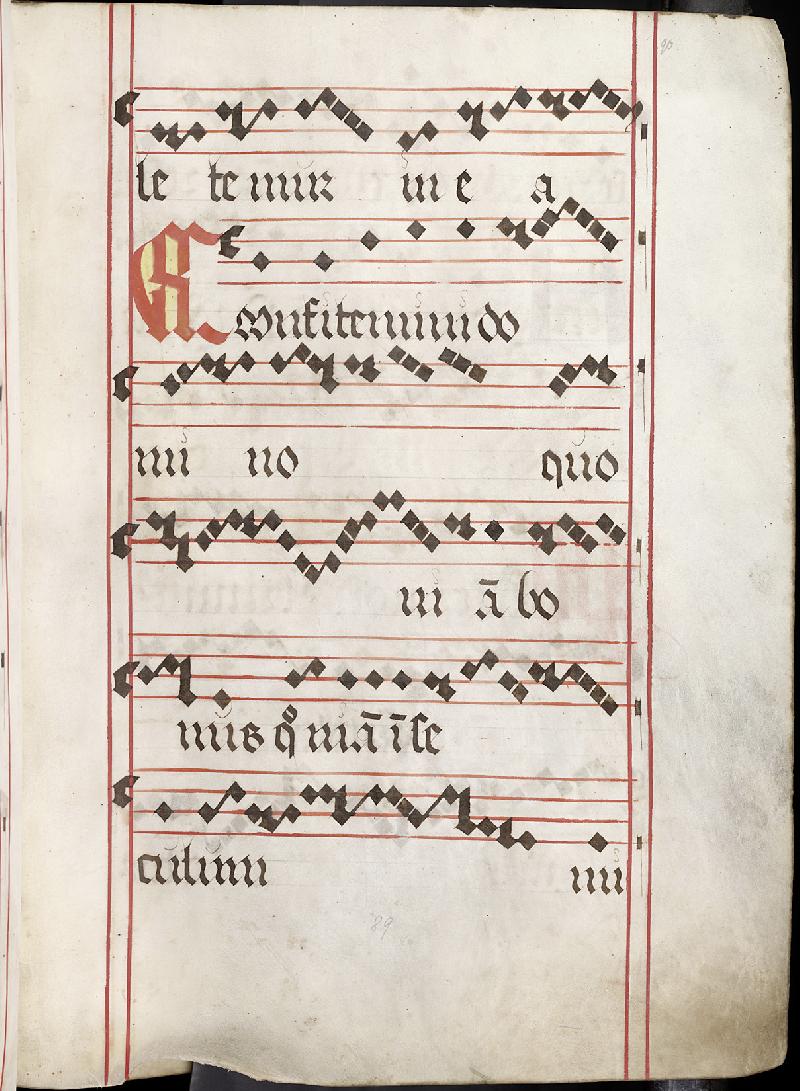 90
le te mur in e a
Confitemini do
mi no quo
ni ā bo
nus qͦ niā ī se
culum mi
89